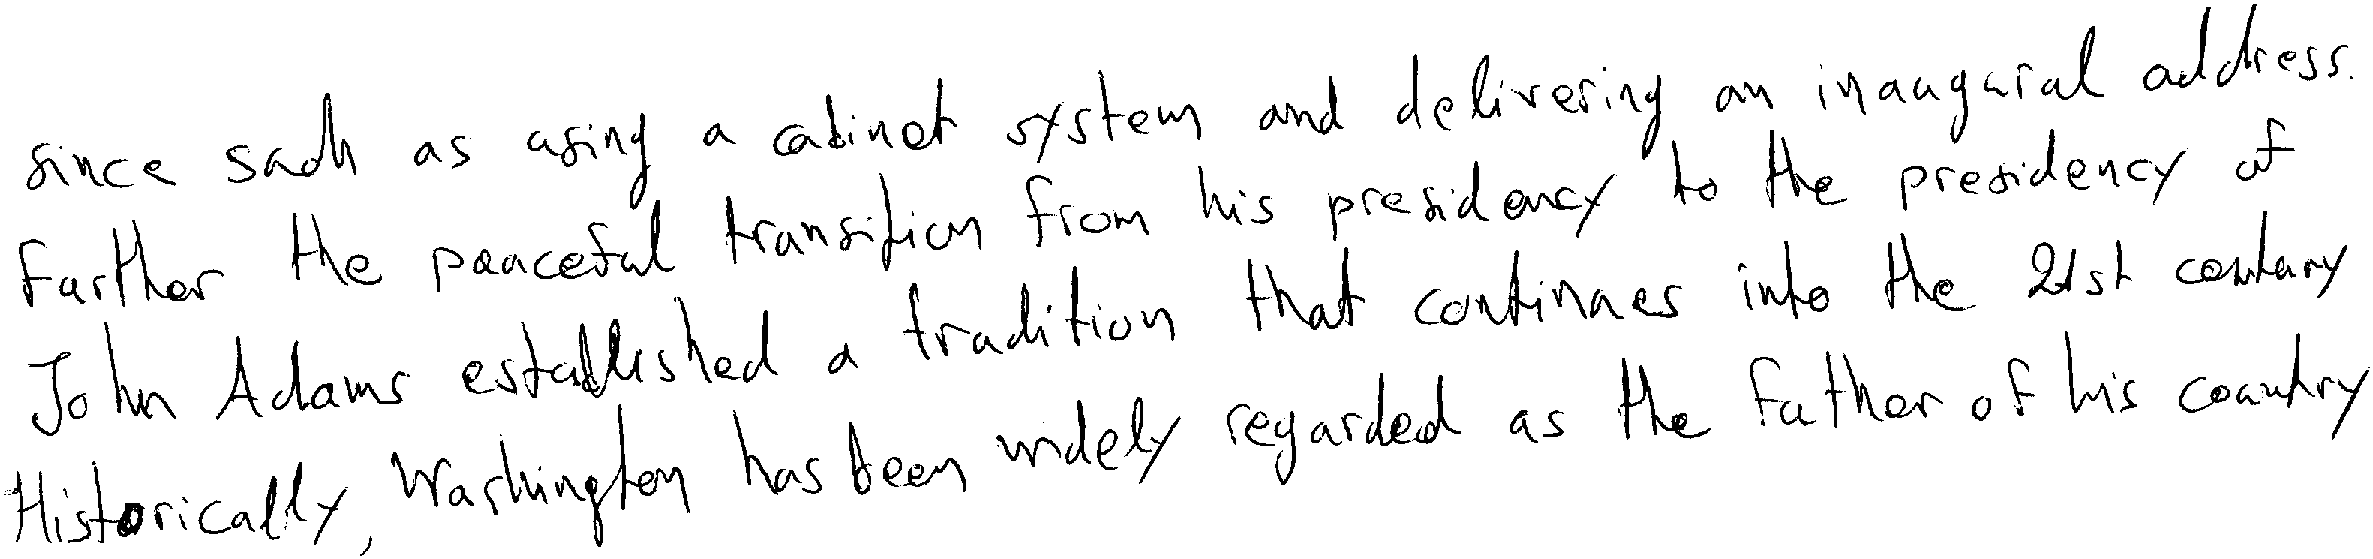 since such as using a cabinet system and delivering an inaugural address.
Further the peaceful transition from his presidency to the presidency of
John Adams established a tradition that continues into the 21st century
Historically, Washington has been widely regarded as the father of his country